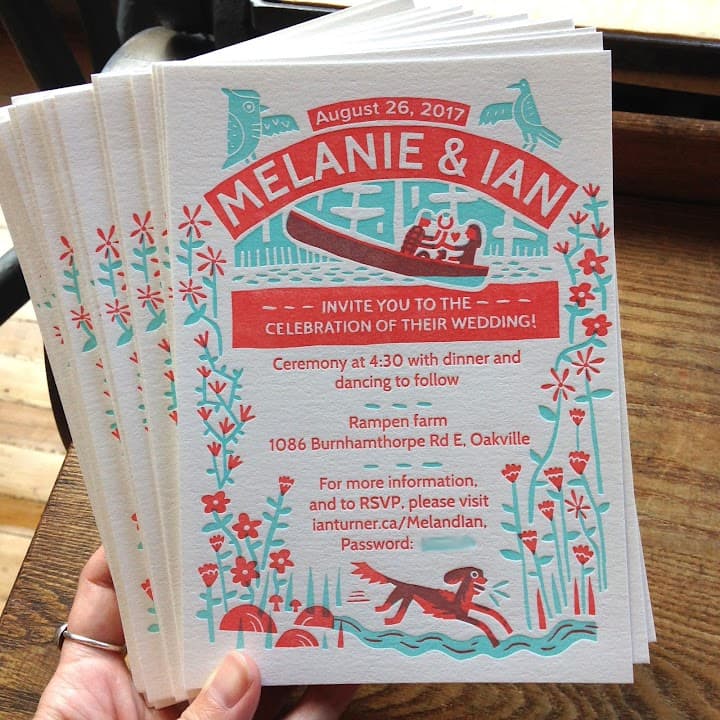 August 26, 2017
MELANIE & IAN
INVITE YOU TO THE
CELEBRATION OF THEIR WEDDING!
Ceremony at 4:30 with dinner and
dancing to follow
Rampen farm
1086 Burnhamthorpe Rd E, Oakville
For more information,
and to RSVP, please visit
ianturner.ca/MelandIan,
Password: